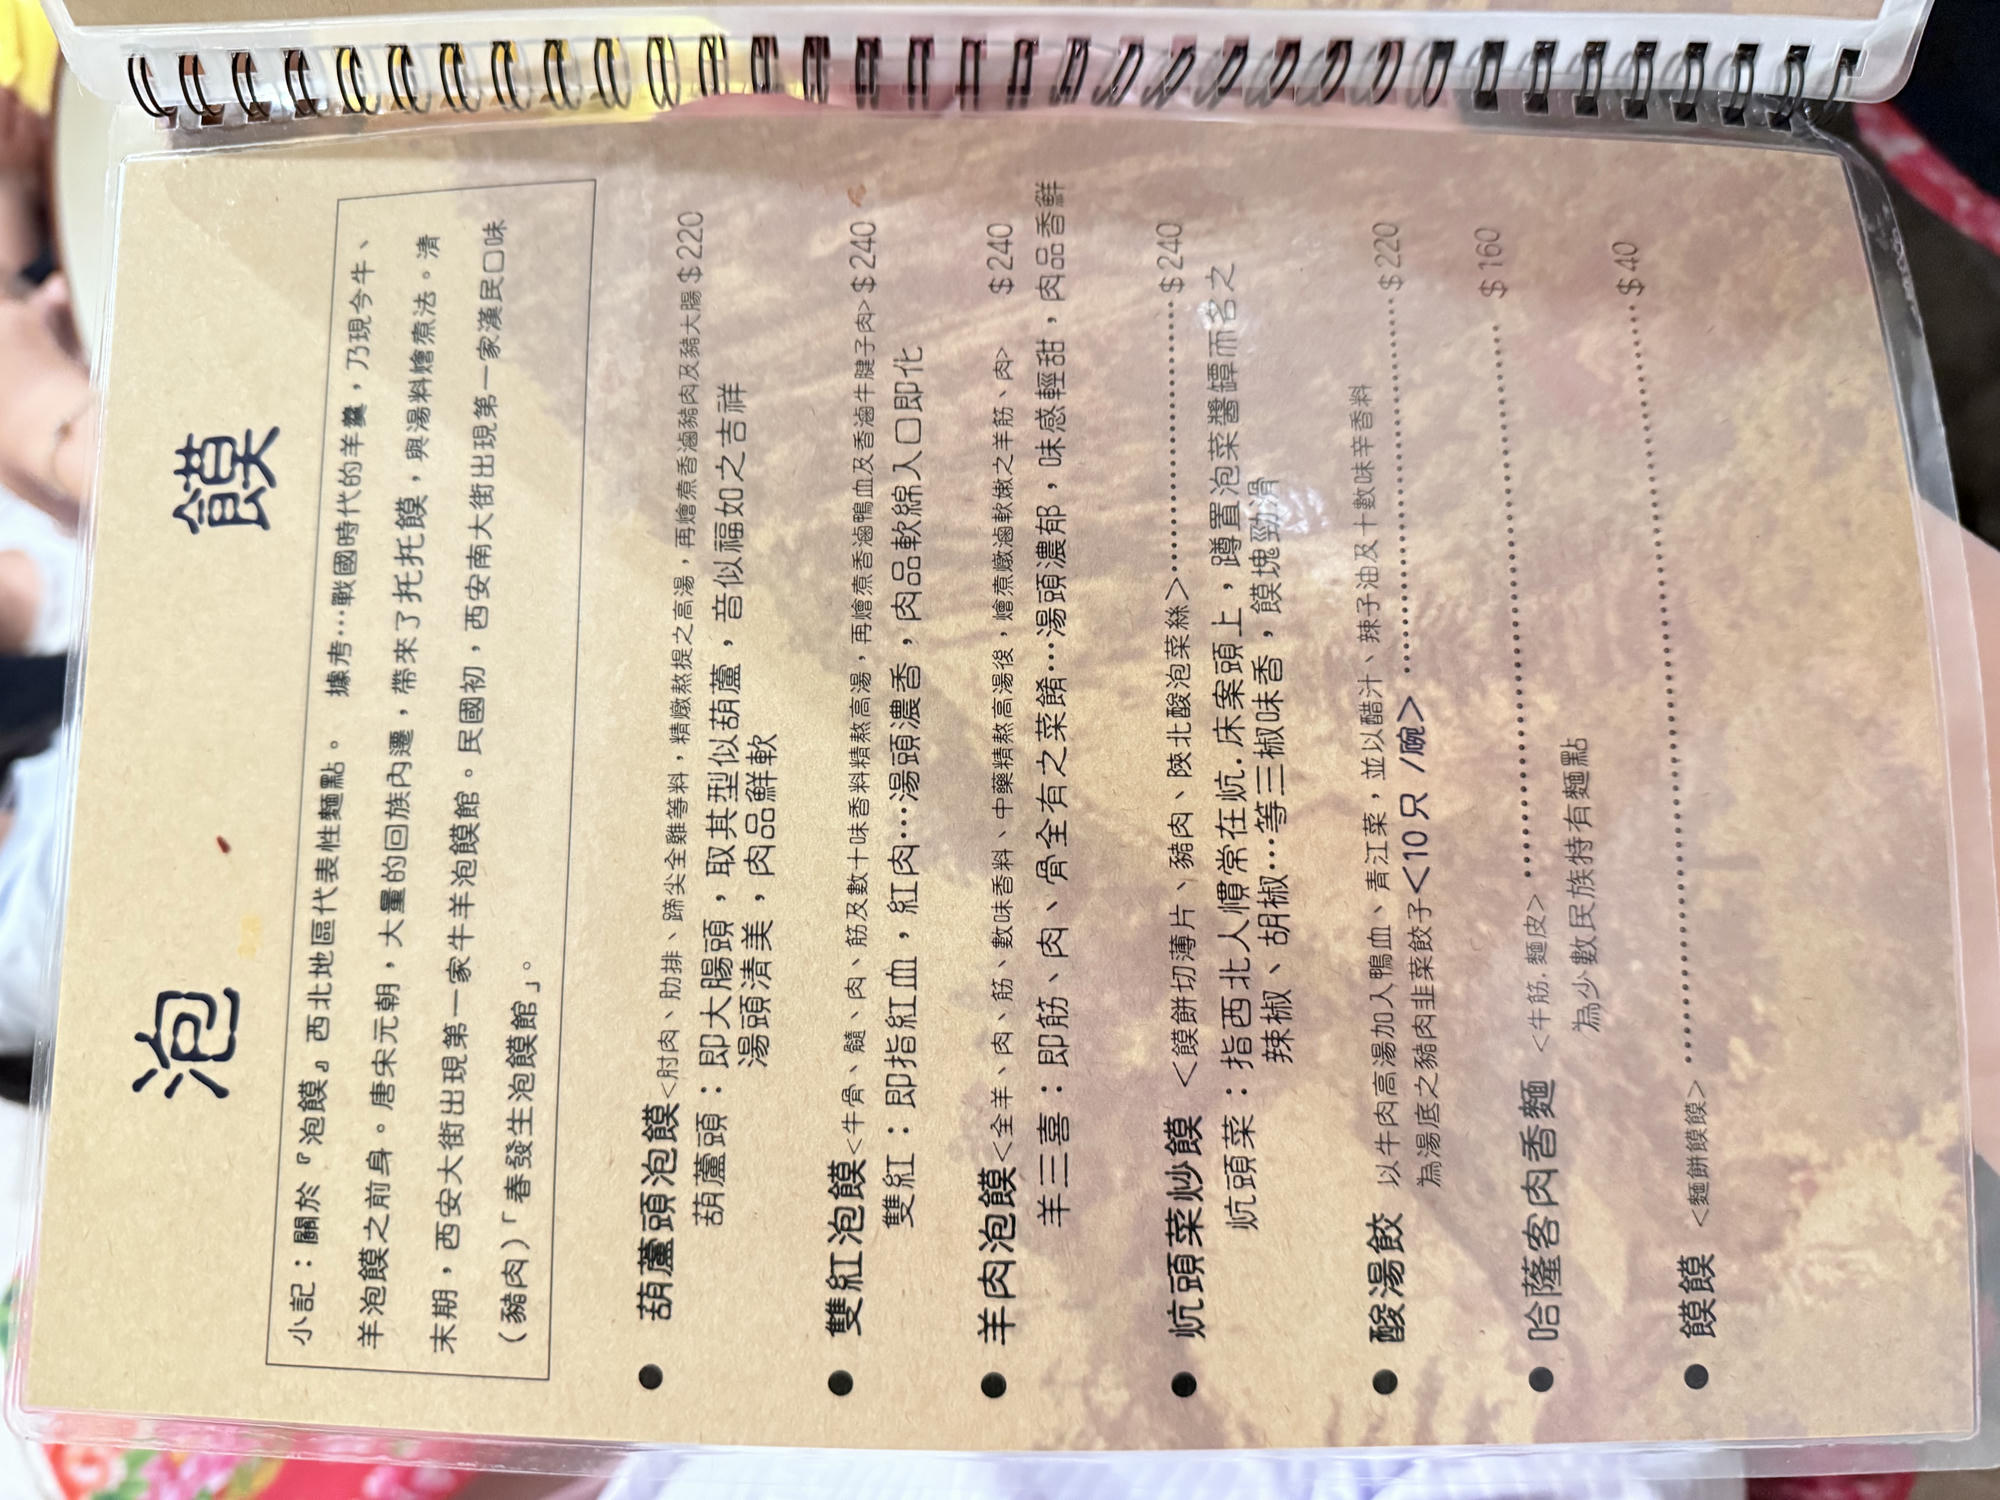 泡 饃
小記：關於『泡饃』西北地區代表性麵點。 據考…戰國時代的羊羹，乃現今牛、
羊泡饃之前身。唐宋元朝，大量的回族內遷，帶來了托托饃，與湯料燴煮法。清
末期，西安大街出現第一家牛羊泡饃館。民國初，西安南大街出現第一家漢民口味
（豬肉）「春發生泡饃館」。
● 葫蘆頭泡饃<肘肉、肋排、蹄尖全雞等料，精燉熬提之高湯，再燴煮香滷豬肉及豬大腸 $220
葫蘆頭：即大腸頭，取其型似葫蘆，音似福如之吉祥
湯頭清美，肉品鮮軟
● 雙紅泡饃<牛骨、髓、肉、筋及數十味香料精熬高湯，再燴煮香滷鴨血及香滷牛腱子肉> $240
雙紅：即指紅血，紅肉…湯頭濃香，肉品軟綿入口即化
● 羊肉泡饃<全羊、肉、筋、數味香料、中藥精熬高湯後，燴煮燉滷軟嫩之羊筋、肉> $240
羊三喜：即筋、肉、骨全有之菜餚…湯頭濃郁，味感輕甜，肉品香鮮
● 炕頭菜炒饃 <饃餅切薄片、豬肉、陝北酸泡菜絲>……………………$240
炕頭菜：指西北人慣常在炕.床案頭上，蹲置泡菜醬罈而名之
辣椒、胡椒…等三椒味香，饃塊勁滑
● 酸湯餃 以牛肉高湯加入鴨血、青江菜，並以醋汁、辣子油及十數味辛香料
為湯底之豬肉韭菜餃子<10只 /碗> ……………………………$220
● 哈薩客肉香麵 <牛筋.麵皮> ……………………………………………$160
為少數民族特有麵點
● 饃饃 <麵餅饃饃> ……………………………………………………………$40